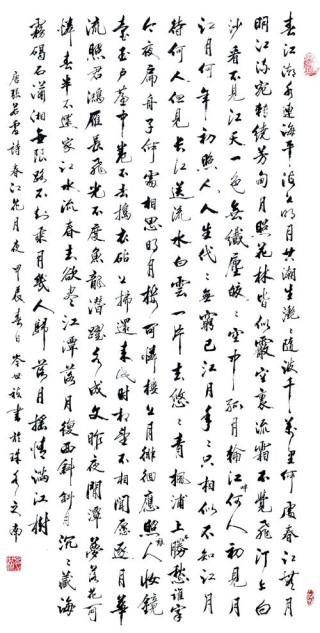 春江潮水連海平海上明月共潮生灩灩隨波千萬里何處春江無月
明江流宛轉繞芳甸月照花林皆似霰空裏流霜不覺飛汀上白
沙看不見江天一色無纖塵皎皎空中孤月輪江畔何人初見月
江月何年初照人人生代代無窮已江月年年只相似不知江月
待何人但見長江送流水白雲一片去悠悠青楓浦上不勝愁誰家
今夜扁舟子何處相思明月樓可憐樓上月徘徊應照離人妝鏡
臺玉戶簾中卷不去搗衣砧上拂還來此時相望不相聞願逐月華
流照君鴻雁長飛光不度魚龍潛躍水成文昨夜閒潭夢落花可
憐春半不還家江水流春去欲盡江潭落月復西斜斜月沉沉藏海
霧碣石瀟湘無限路不知乘月幾人歸落月搖情滿江樹
唐張若虛詩春江花月夜甲辰春日岑世書於珠江之南